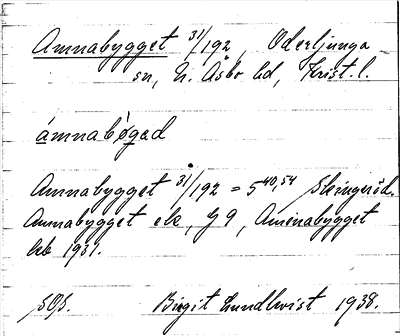 Amnabygget 31/192, Oderljunga
sn, N. Åsbo hd, Krist. l.
ámnabø̀gad
Amnabygget 31/192 = 5 40,54 Skingeröd.
Amnabygget ek, G 9, Amenabygget
kb 1931.
SOS. Birgit Lundkvist 1938.